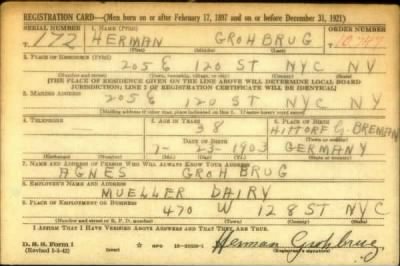 REGISTRATION CARD—(Men born on or after February 17, 1897 and on or before December 31, 1921)
SERIAL NUMBER 1. NAME (Print) ORDER NUMBER
T 172 HERMAN GROHBRUG
(First) (Middle) (Last)
2. PLACE OF RESIDENCE (Print)
205 E 120 ST NYC NY
(Number and street) (Town, township, village, or city) (County) (State)
[THE PLACE OF RESIDENCE GIVEN ON THE LINE ABOVE WILL DETERMINE LOCAL BOARD
JURISDICTION; LINE 2 OF REGISTRATION CERTIFICATE WILL BE IDENTICAL]
3. MAILING ADDRESS
205 E 120 ST NYC
[Mailing address if other than place indicated on line 2. If same insert word same]
4. TELEPHONE 5. AGE IN YEARS 6. PLACE OF BIRTH
38 HITTORF G. BREMAN
DATE OF BIRTH
7- 23- 1903 GERMANY
(Exchange) (Number) (Mo.) (Day) (Yr.) (State or country)
7. NAME AND ADDRESS OF PERSON WHO WILL ALWAYS KNOW YOUR ADDRESS
AGNES GROHBRUG
8. EMPLOYER'S NAME AND ADDRESS
MUELLER DAIRY
9. PLACE OF EMPLOYMENT OR BUSINESS
470 W 128 ST NYC
(Number and street or R. F. D. number) (Town) (County) (State)
I AFFIRM THAT I HAVE VERIFIED ABOVE ANSWERS AND THAT THEY ARE TRUE.
D. S. S. Form 1
(Revised 1-5-42) (over) GPO
Herman Grohbrug
(Registrant's signature)